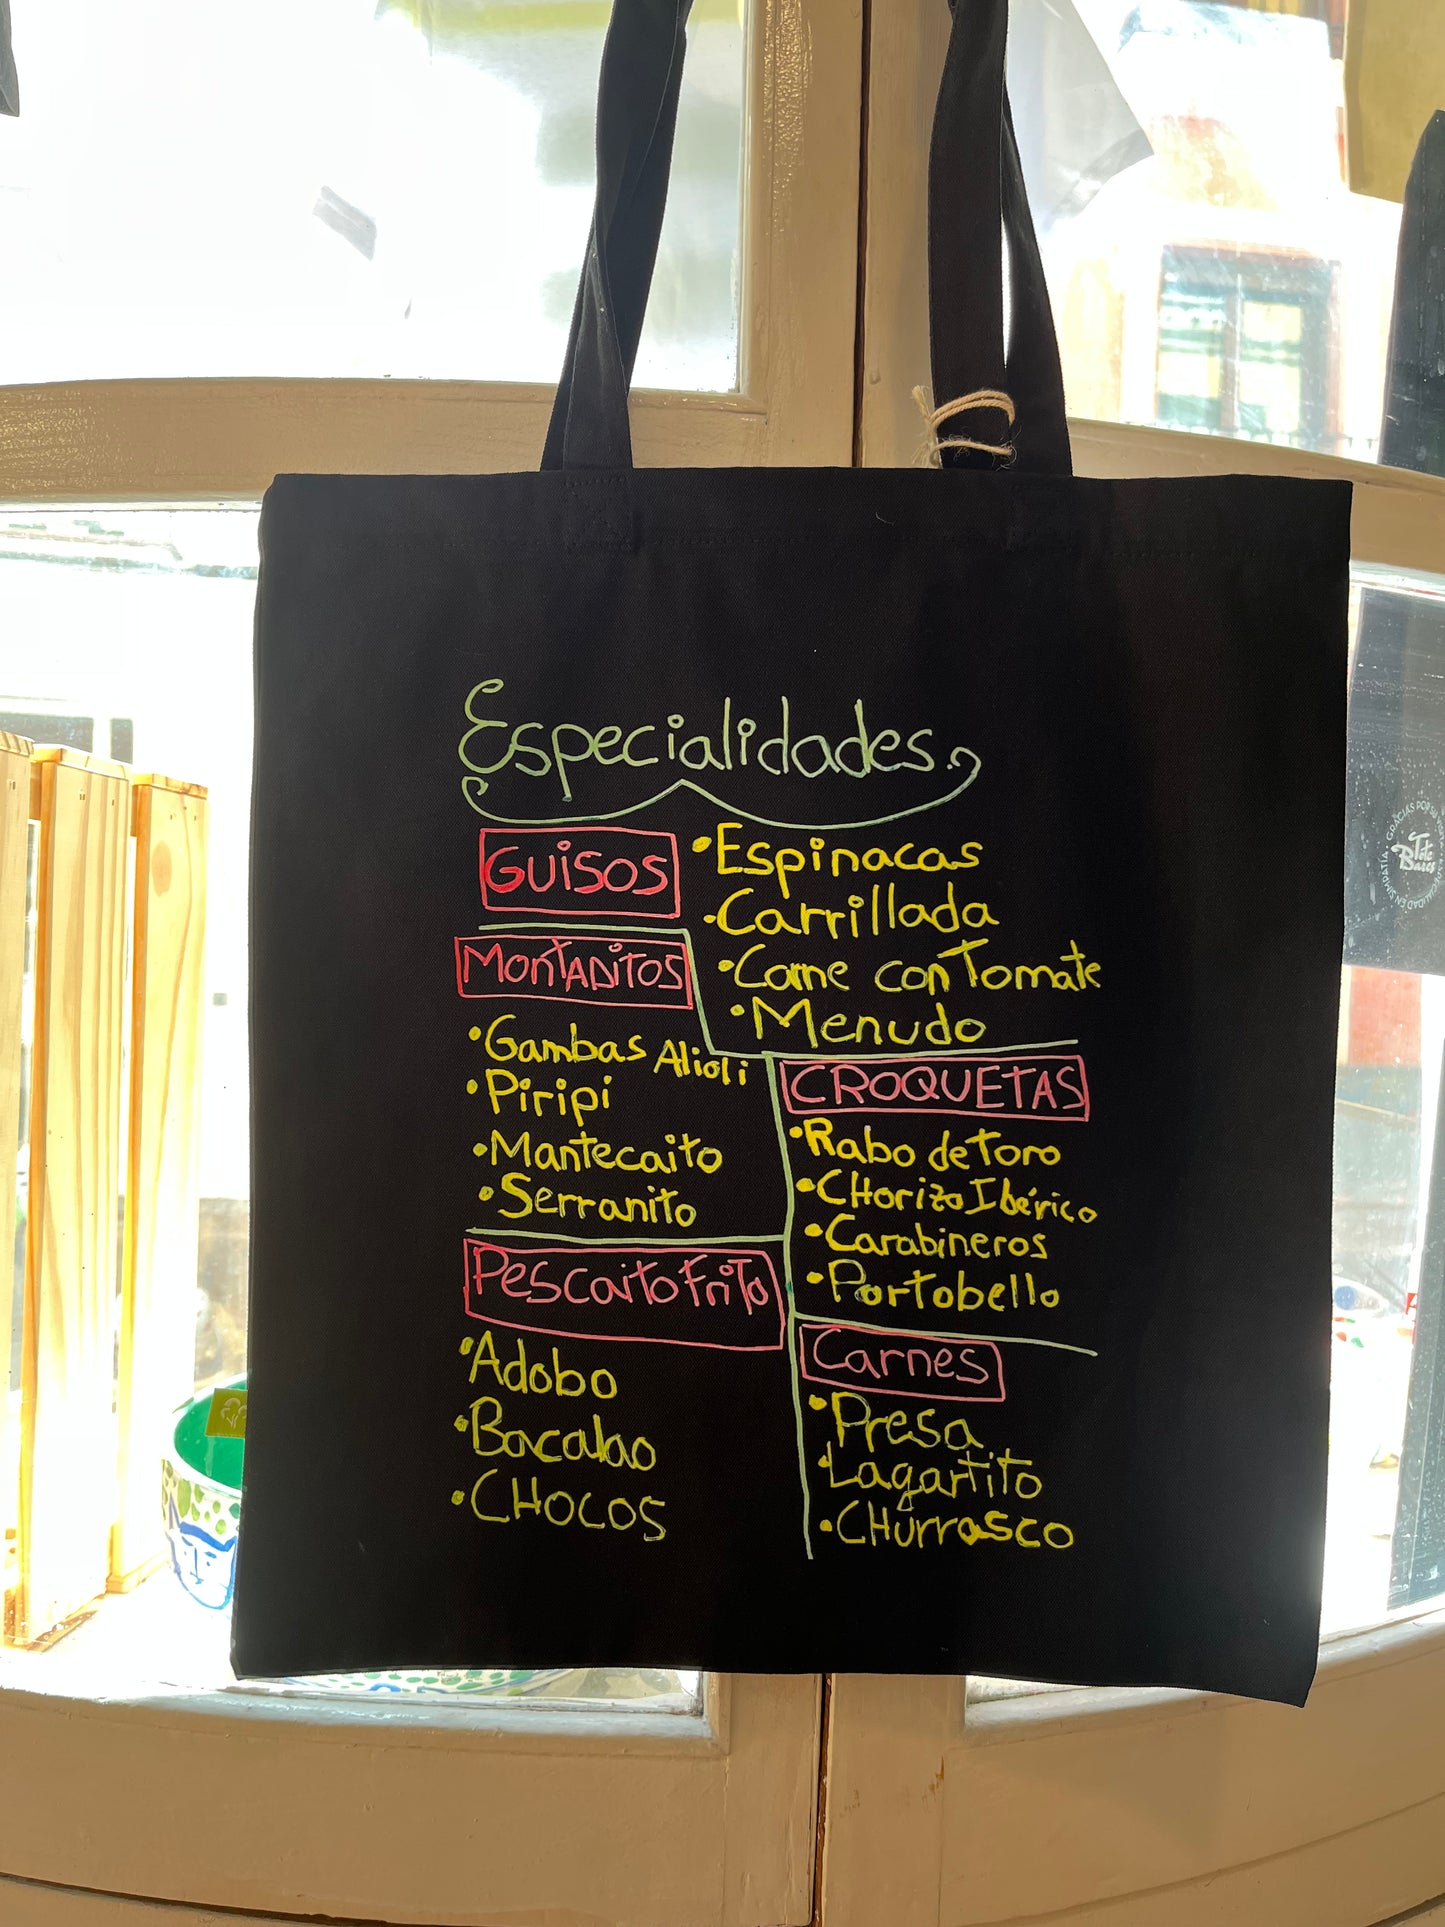 Especialidades.
GUISOS
• Espinacas
• Carrillada
• Carne con Tomate
• Menudo
MONTADITOS
• Gambas Alioli
• Piripi
• Mantecaito
• Serranito
CROQUETAS
• Rabo de Toro
• CHorizo Ibérico
• Carabineros
• Portobello
Pescaito Frito
• Adobo
• Bacalao
• CHOCOS
Carnes
• Presa
• Lagartito
• CHurrasco
GRACIAS POR SU
EN SIMPATÍA